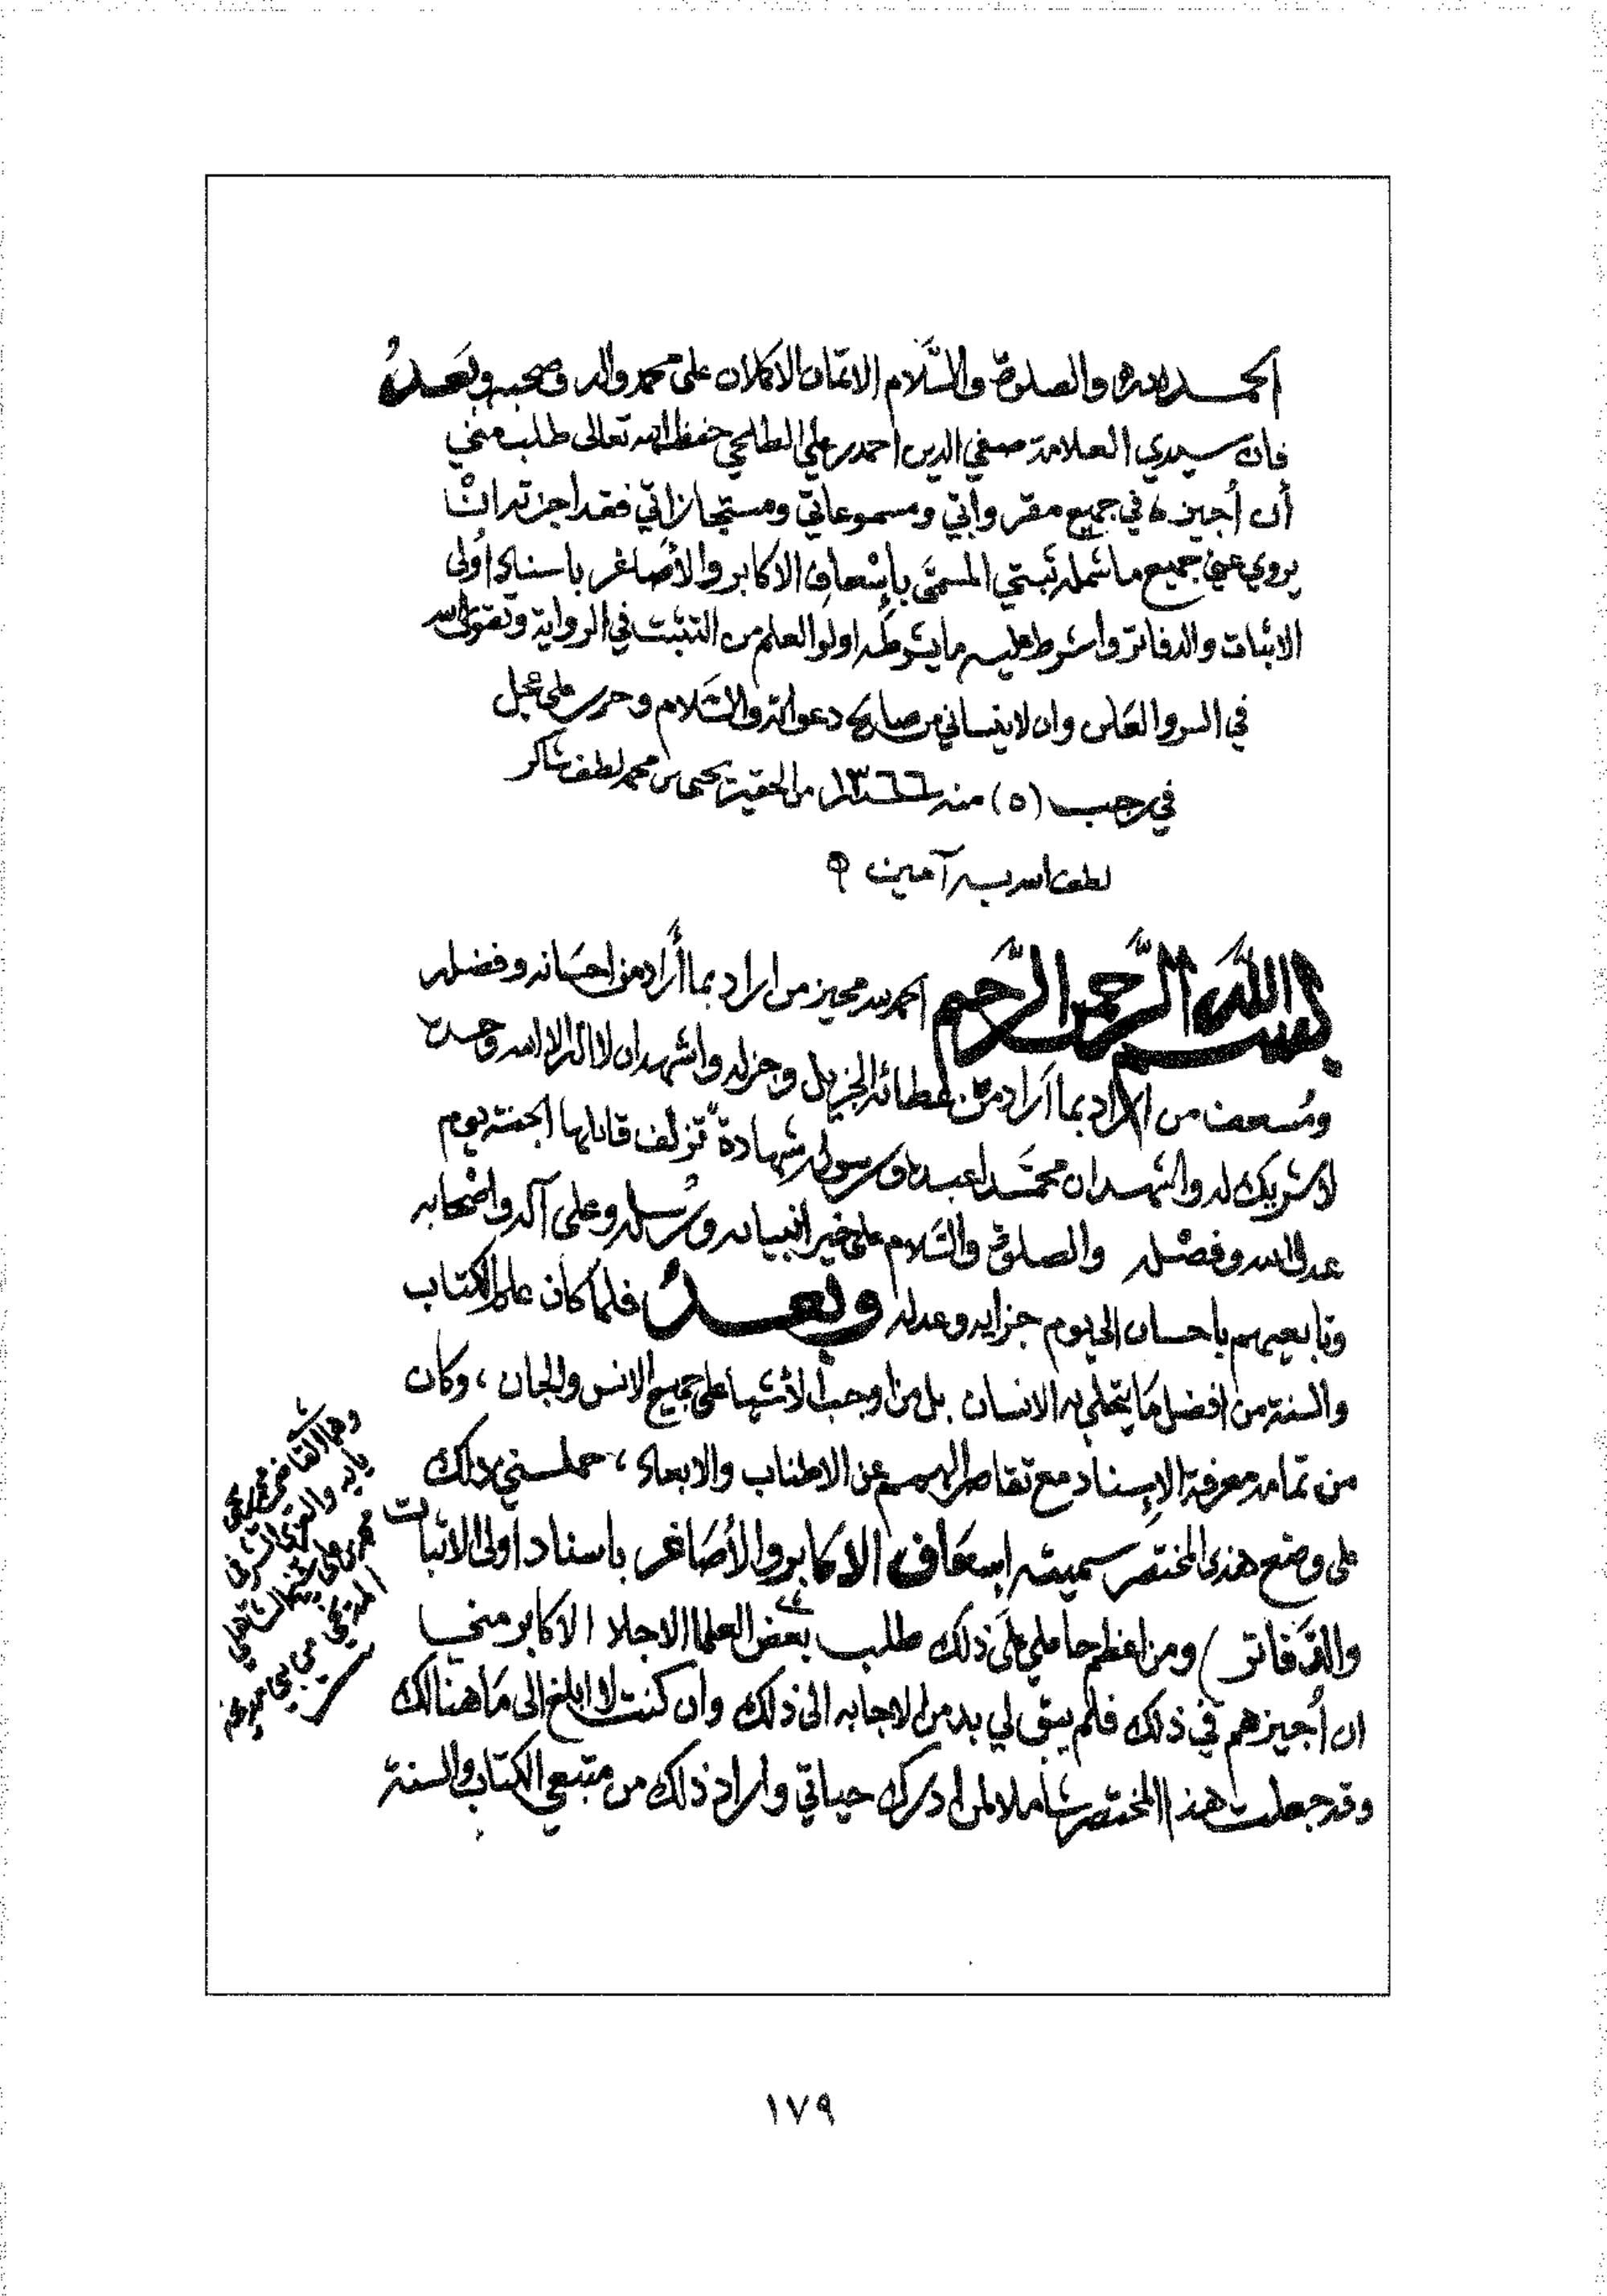 الحمد لله والصلوة والسَّلام الاتمّان الاكملان على محمد واله وصحبه وبَعدُ
فان سيدي العلامة صفي الدين احمد بن علي الطلحي حفظه الله تعالى طلب مني
أن أُجيزه في جميع مقرواتي ومسموعاتي ومستجازاتي فقد اجزته انْ
يروي عني جميع ما شمله ثَبتي المسمَّى بإسْعاف الاكابر والأصَاغر باسناد أولى
الاثبات والدفاتر واشرط عليه ما يشرطُه اولوا العلم من التثبّت في الرواية وتقوى الله
في السر والعَلن وان لا ينساني من صالح دعواته والسَّلام وحرر على عجل
في رجب (٥) سنه ١٣٦٦ من الحقير يحيى بن محمد لطف شاكر
لطف الله به آمين
بسم اللهِ الرَّحمن الرَّحيم الحمد لله مجيز من اراد بما أَراد من احسَانه وفضله
ومُسعف من اراد بما أراد من عطائه الجزيل وجزله واشهد ان لا اله الا الله وحده
لا شريك له واشهد ان محمَّدا عبده ورسوله شهادةً تُزلف قائلها الجنة يوم
عدل الله وفضْله والصلوة والسَّلام على خير انبيائه ورُسله وعلى آله واصْحابه
وتابعيهم باحسان الى يوم جزايه وعدله وبعدُ فلما كان علم الكتاب
والسنة من افضل مَا يتحلي به الانسان بل من اوجب الأشيا على جميع الانس والجان ، وكان
من تمامه معرفة الإسناد مع تقاصر الهمم عن الاطناب والابعاد ، حملني ذلك
على وضع هذا المختصر سميته إسعَاف الاكابر والأصَاغر باسناد اولى الاثبات
والدَّفاتر) ومن اعظم حاملي على ذلك طلب بعض العلما الاجلا الاكابر مني
ان أُجيزهم في ذلك فلم يبق لي بد من الاجابه الى ذلك وان كنت لا ابلغ الى مَا هنالك
وقد جعلت هذا المختصر شاملا لمن ادرك حياتي واراد ذلك من متبعي الكتاب والسنة
وهما القاضي محمد
١٧٩